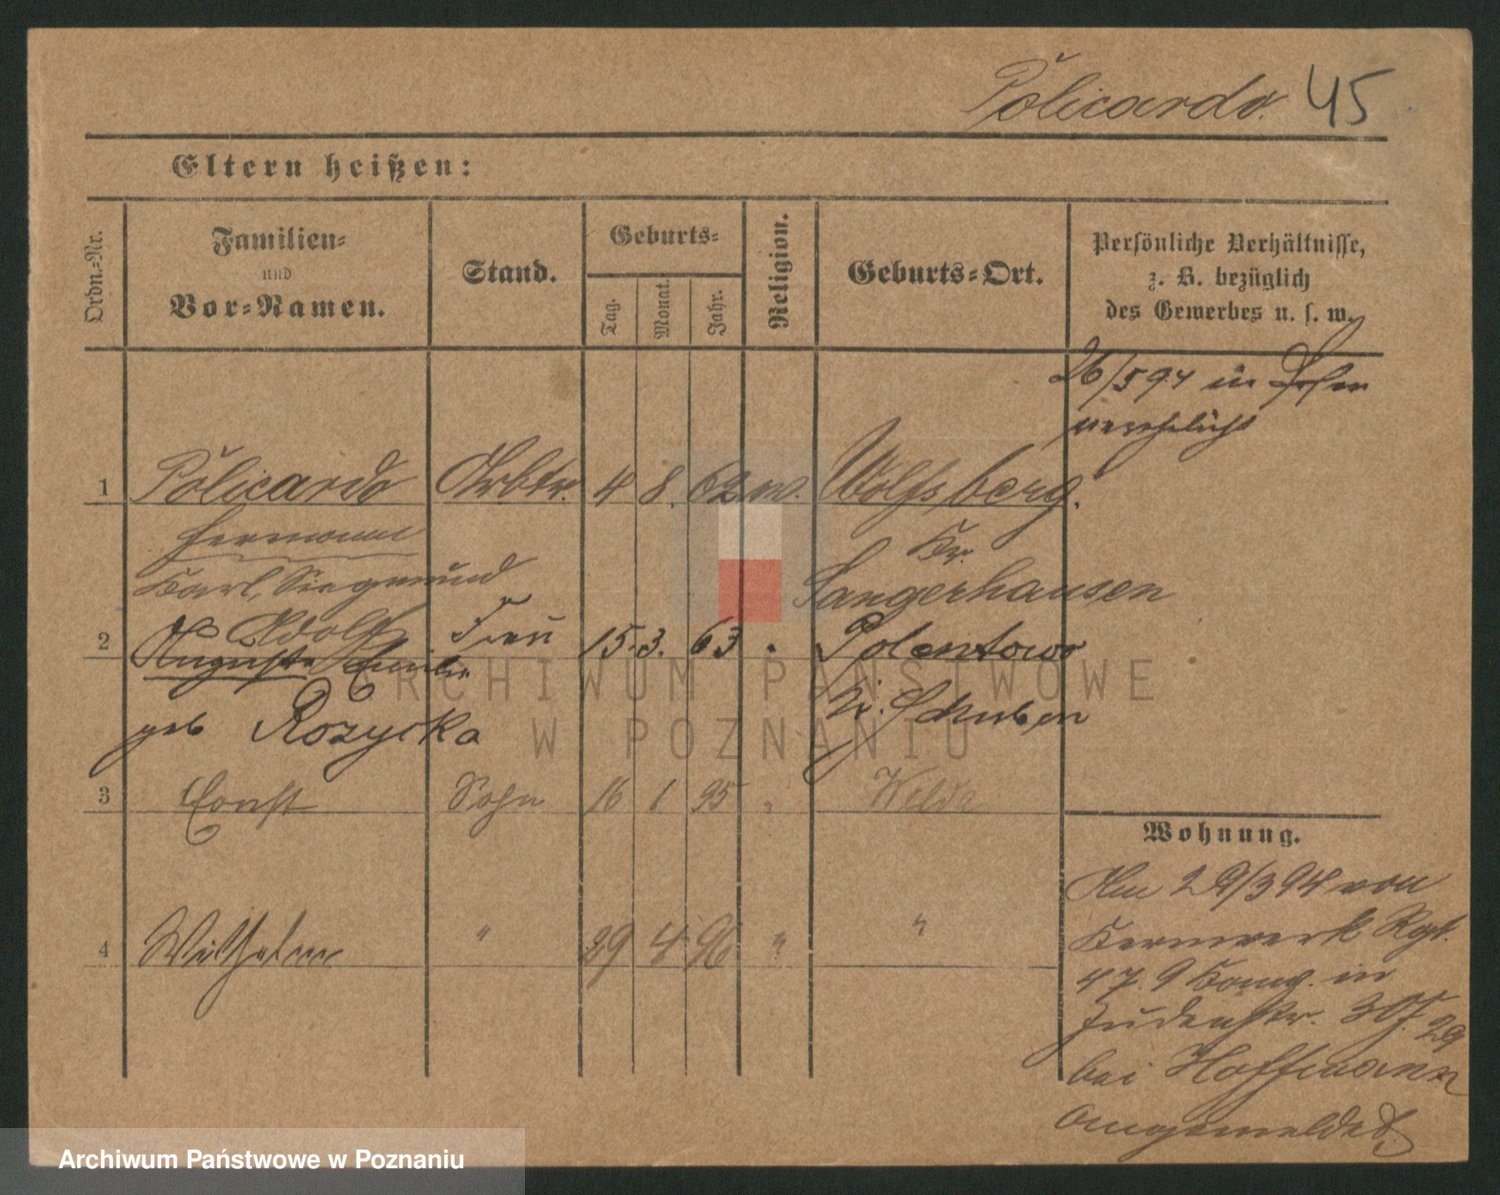 Policardo. 45
Eltern heißen:
Ordn.-Nr.
Familien-
und
Vor-Namen.
Stand.
Geburts-
Tag.
Monat.
Jahr.
Religion.
Geburts-Ort.
Persönliche Verhältnisse,
z. B. bezüglich
des Gewerbes u. s. w.
26/5 94 in Posen
verehelicht
1 Policardo Arbtr. 4 8. 62 Wolfsberg.
Hermann Kr.
Karl, Siegmund Sangerhausen
Adolf
2 Auguste Emilie Frau 15. 3. 63 Polentowo
geb Rozycka Kr. Schubin
3 Ernst Sohn 16 1 95 " Wilda
Wohnung.
4 Wilhelm " 29 4 96 " "
Am 29/3 94 von
Kernwerk Rgt.
47. 9 Komp. in
Judenstr. 30
bei Hoffmann
angemeldet.
ARCHIWUM PAŃSTWOWE
W POZNANIU
Archiwum Państwowe w Poznaniu